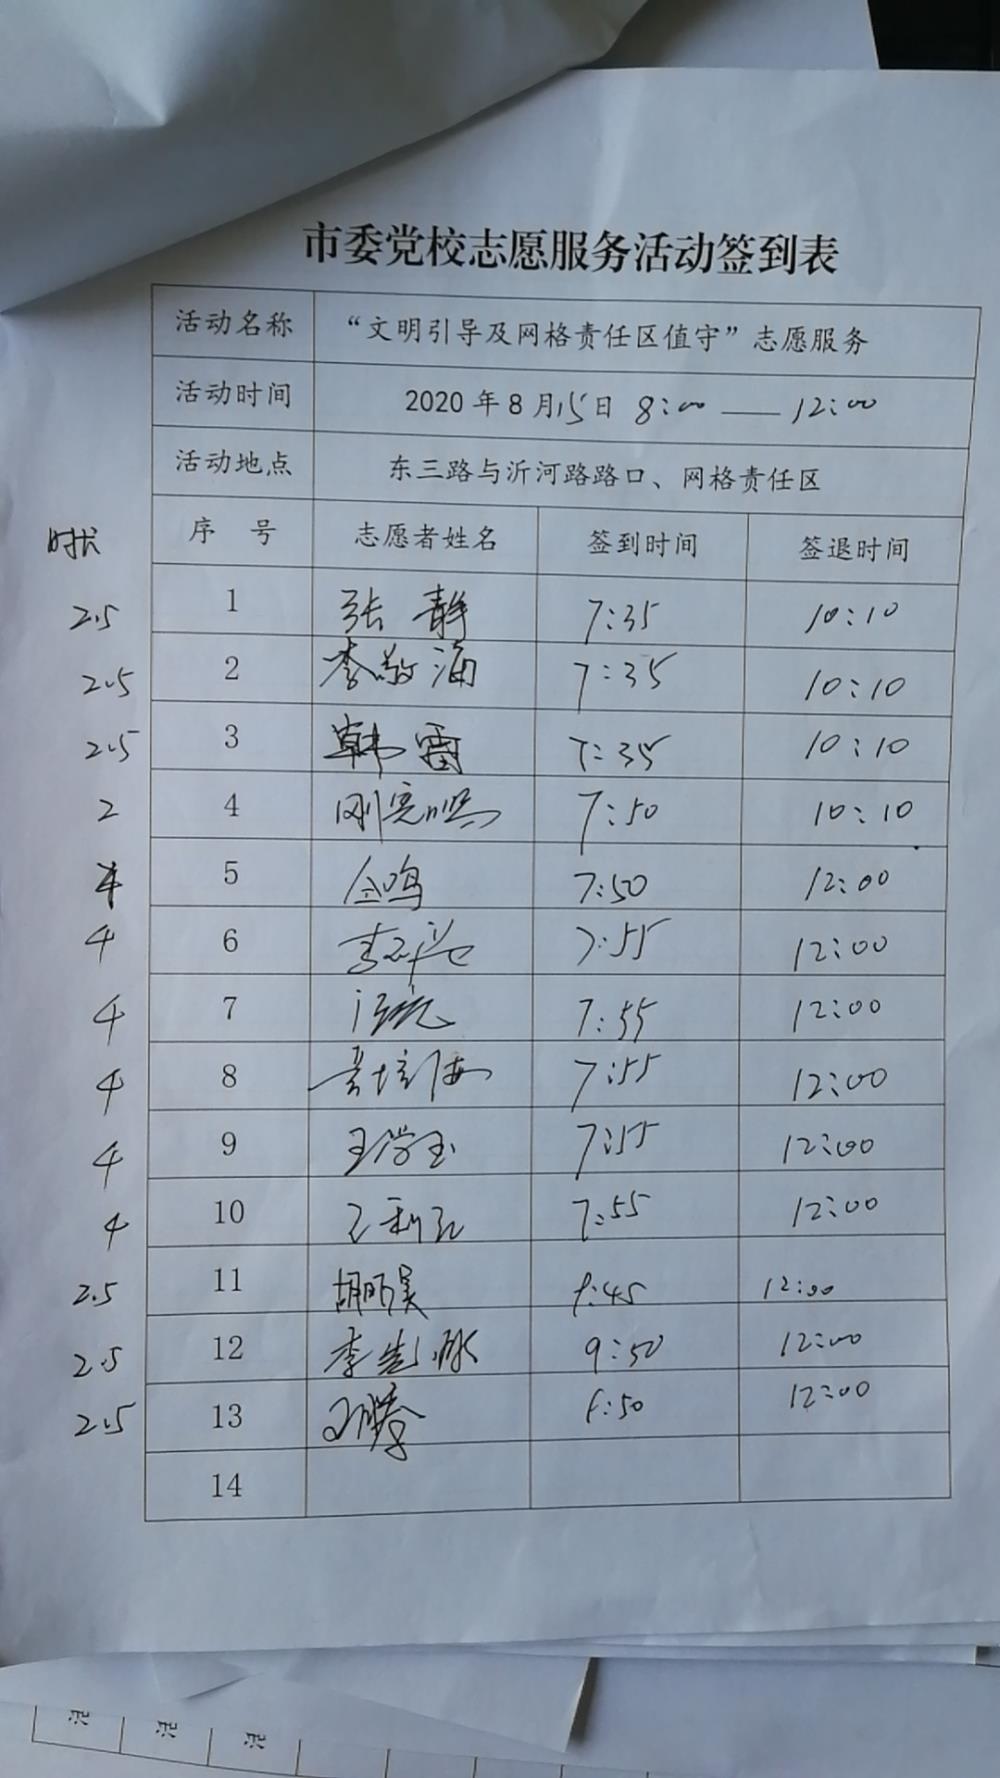 市委党校志愿服务活动签到表
活动名称 “文明引导及网格责任区值守”志愿服务
活动时间 2020年8月15日 8:00 —— 12:00
活动地点 东三路与沂河路路口、网格责任区
时长 序 号 志愿者姓名 签到时间 签退时间
2.5 1 张静 7:35 10:10
2.5 2 李敬海 7:35 10:10
2.5 3 韩雷 7:35 10:10
2 4 7:50 10:10
4 5 7:50 12:00
4 6 7:55 12:00
4 7 7:55 12:00
4 8 7:55 12:00
4 9 王学玉 7:55 12:00
4 10 7:55 12:00
2.5 11 :45 12:00
2.5 12 9:50 12:00
2.5 13 :50 12:00
14